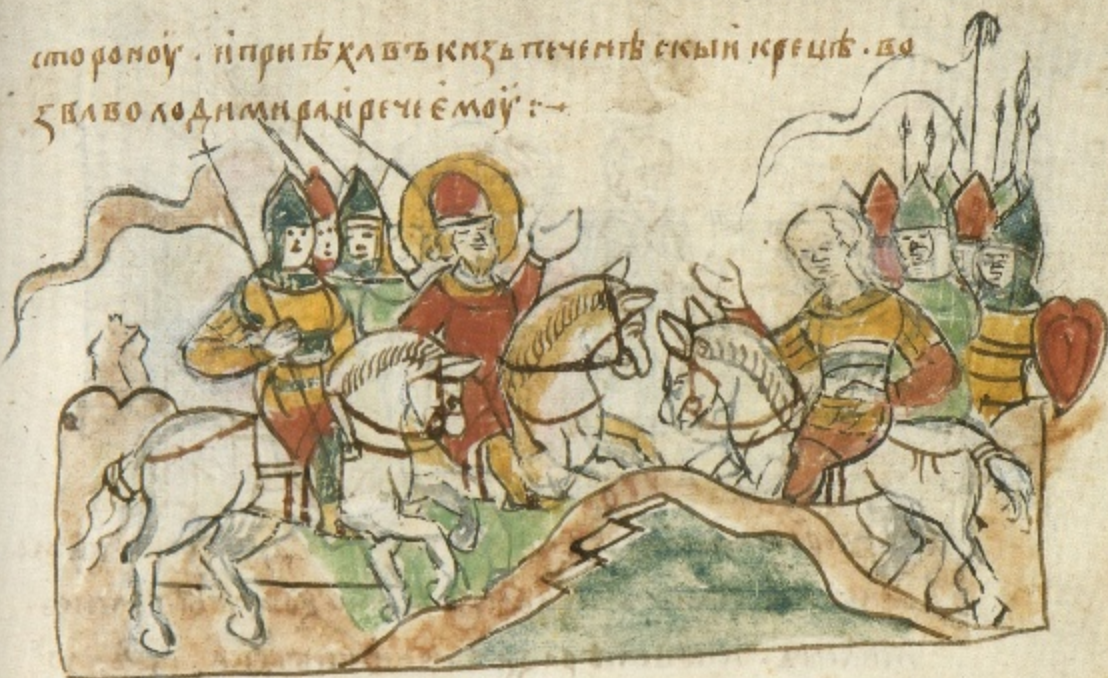 стороноу҆ . и҆приѣхавъ кнѧзь печенѣскыи к рецѣ . во
зва володимира и҆ рече є҆моу҆ :~